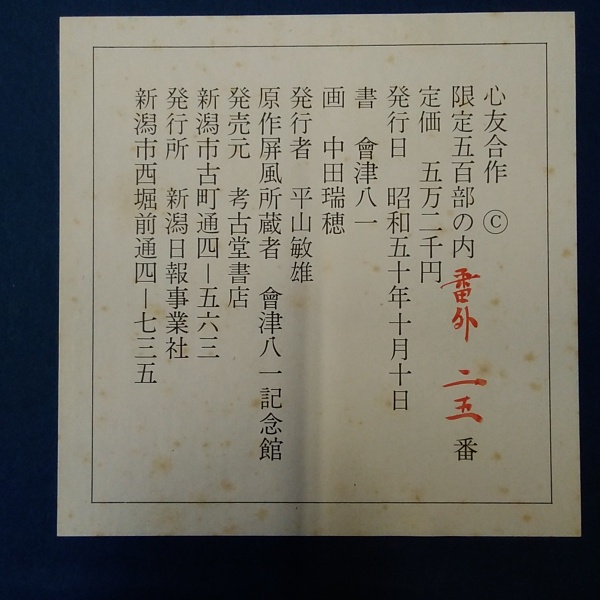 心友合作 ©
限定五百部の内 番外 二五 番
定価 五万二千円
発行日 昭和五十年十月十日
書 會津八一
画 中田瑞穂
発行者 平山敏雄
原作屏風所蔵者 會津八一記念館
発売元 考古堂書店
新潟市古町通四ー五六三
発行所 新潟日報事業社
新潟市西堀前通四ー七三五